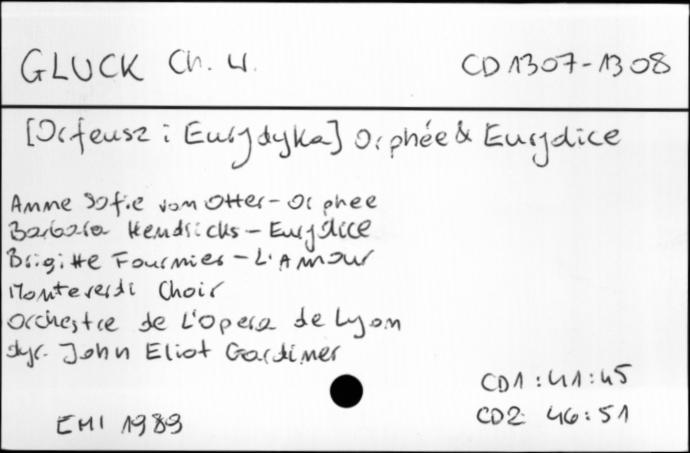 GLUCK Ch. W. CD 1307-1308
[Orfeusz i Eurydyka] Orphée & Eurydice
Anne Sofie von Otter - Orphee
Barbara Hendricks - Eurydice
Brigitte Fournier - L'Amour
Monteverdi Choir
Orchestre de L'Opera de Lyon
dyr. John Eliot Gardiner
CD1: 41:45
EMI 1989 CD2: 46:51